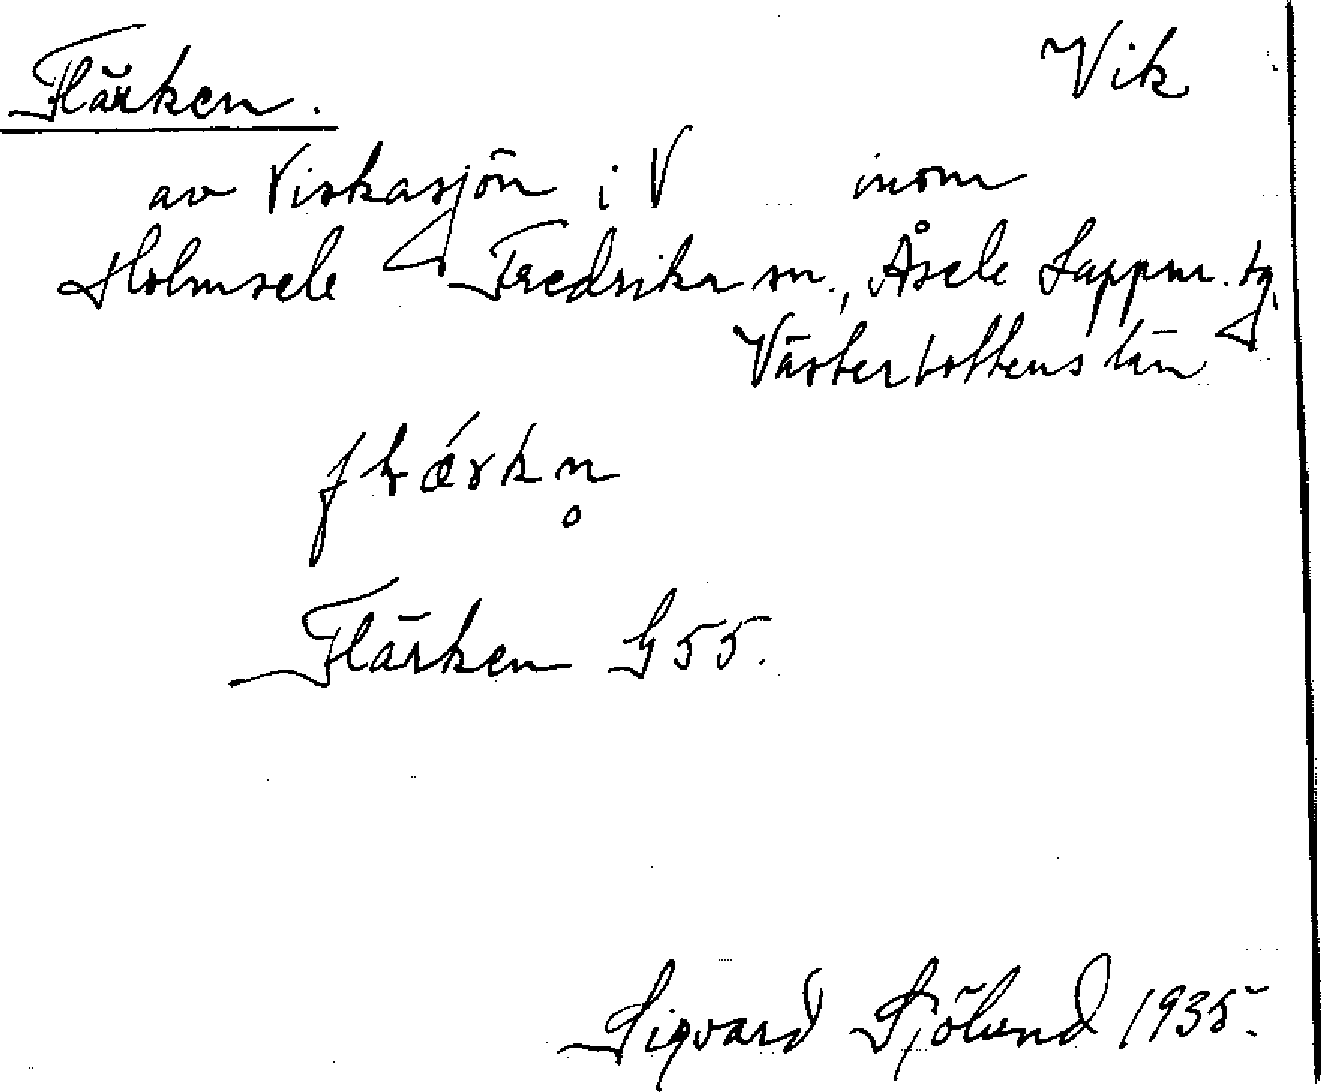 Flärken. Vik
av Viskasjön i V inom
Holmsele Fredrika sn., Åsele Lappm. tg,
Västerbottens län
Flärken G 55.
Sigvard Sjölund 1935.